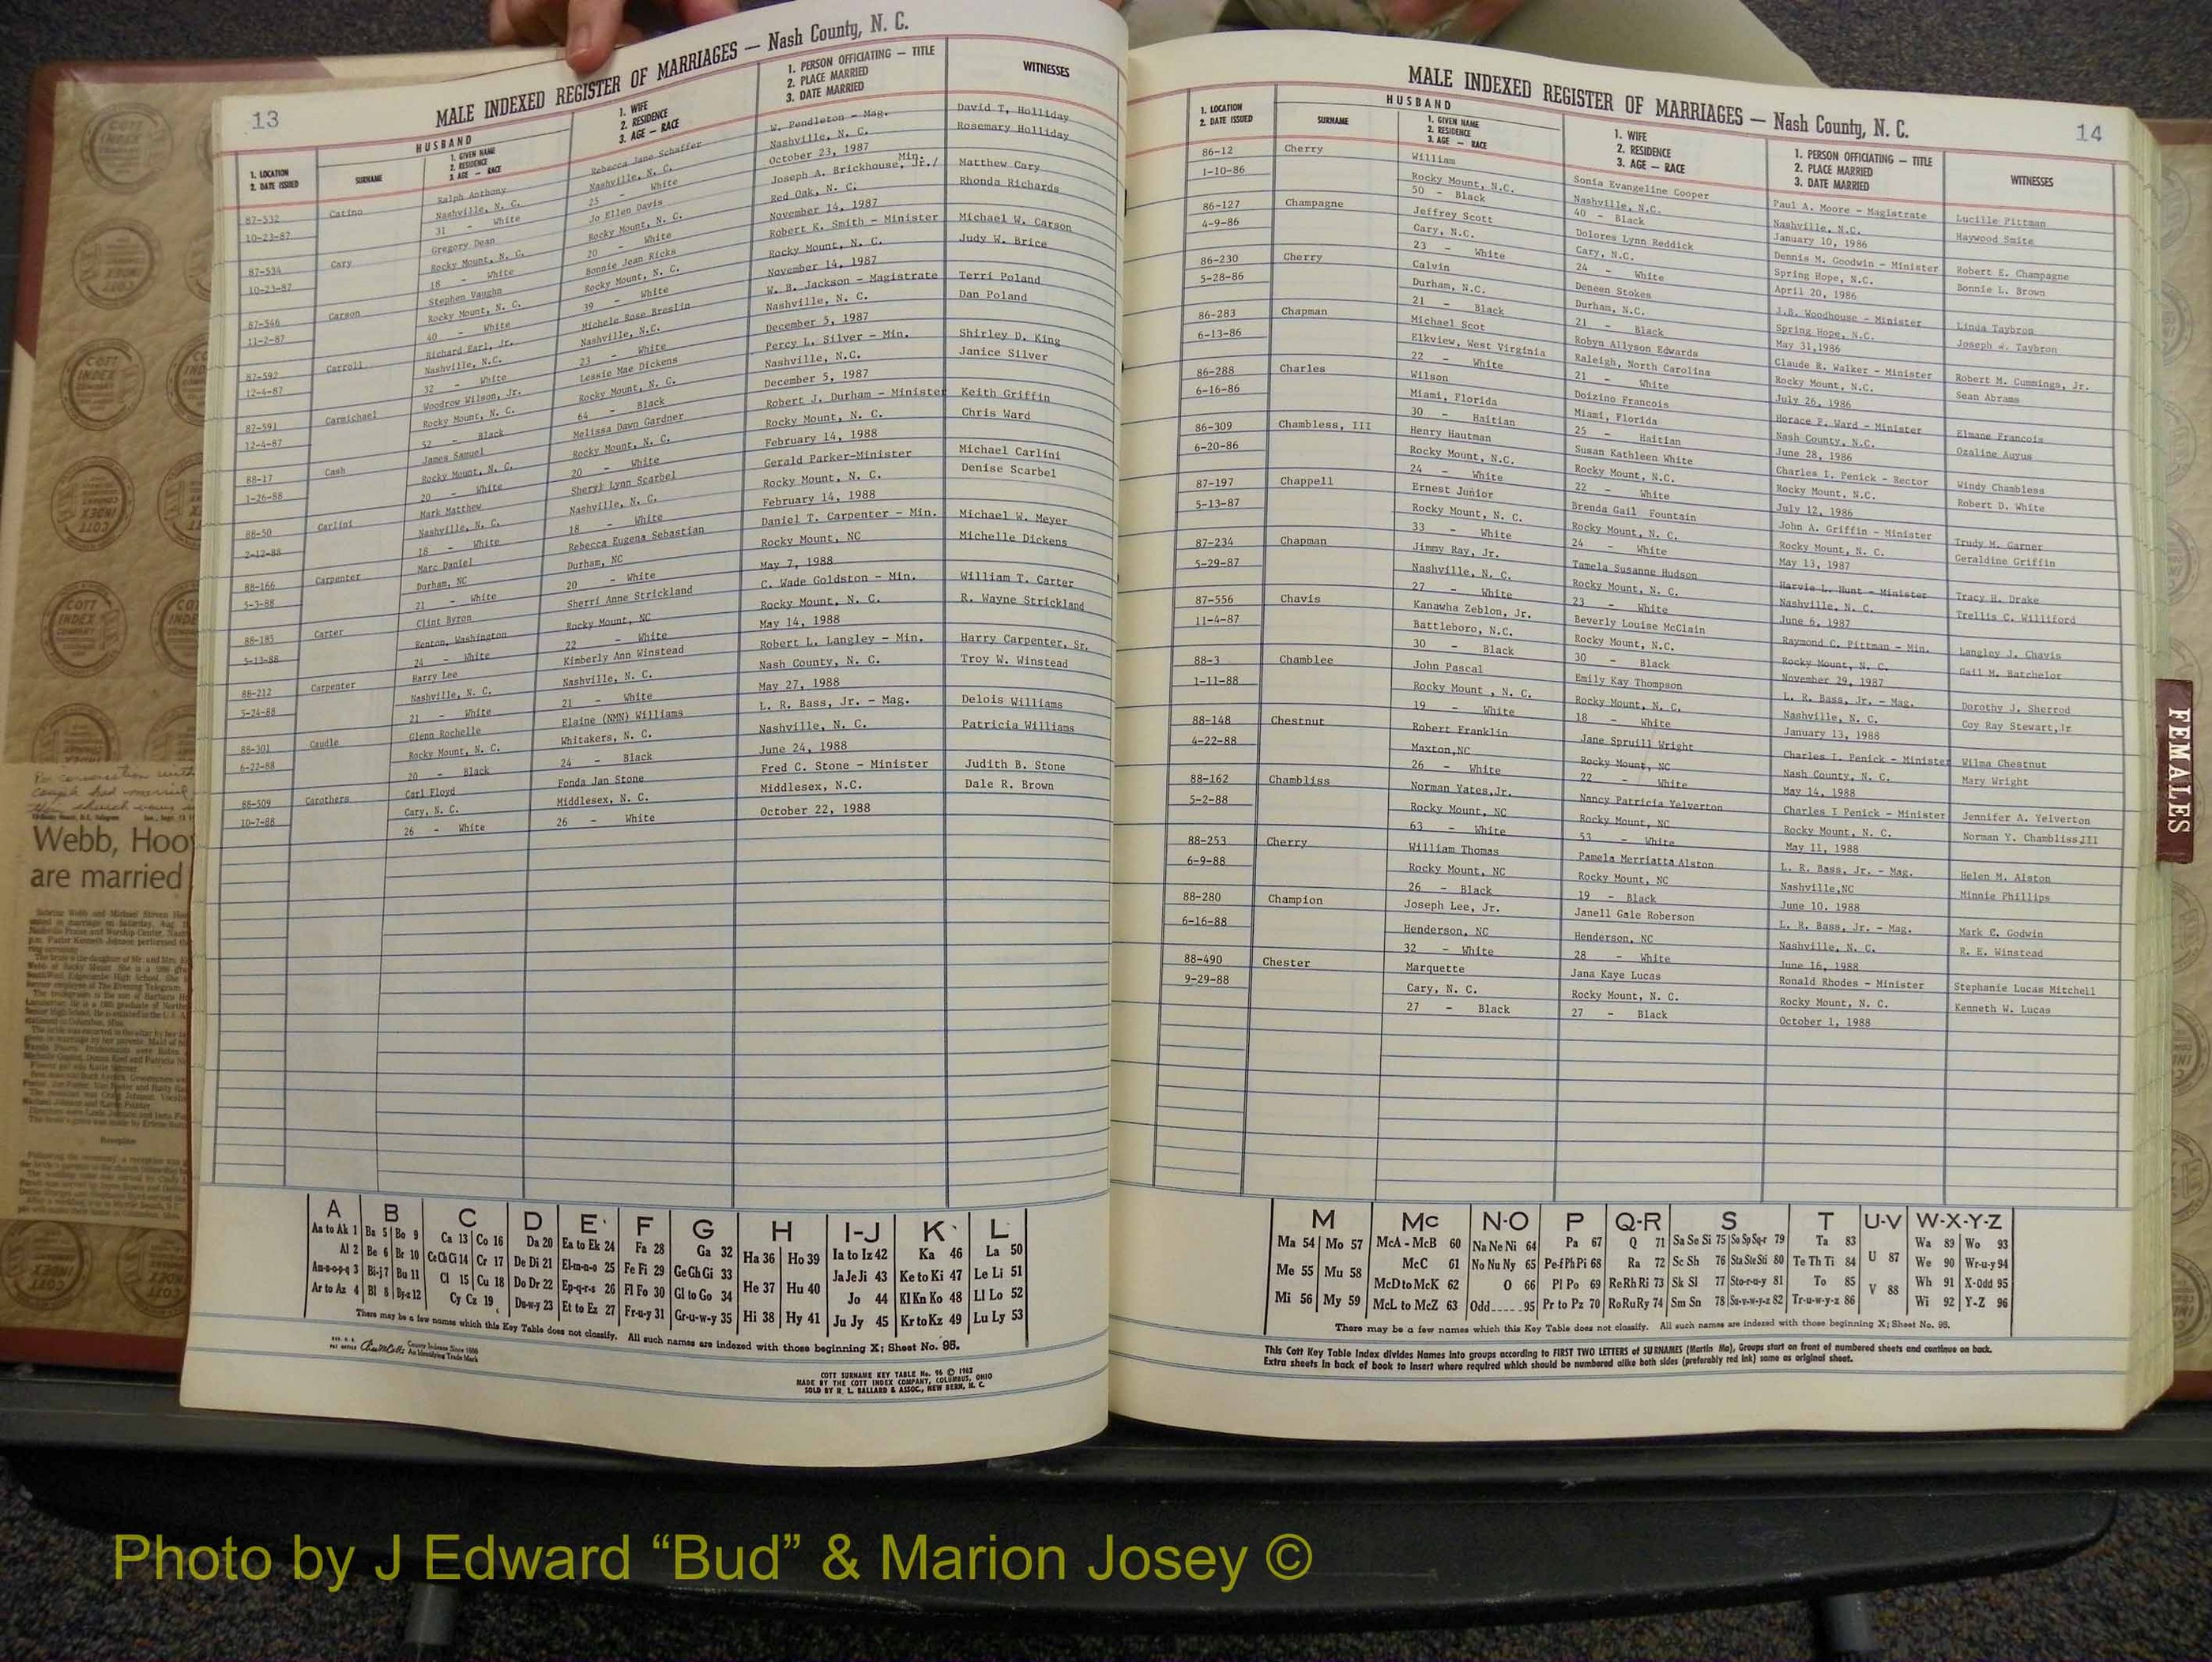 13
MALE INDEXED REGISTER OF MARRIAGES — Nash County, N. C.
1. LOCATION
2. DATE ISSUED
HUSBAND
SURNAME
1. GIVEN NAME
2. RESIDENCE
3. AGE — RACE
1. WIFE
2. RESIDENCE
3. AGE — RACE
1. PERSON OFFICIATING — TITLE
2. PLACE MARRIED
3. DATE MARRIED
WITNESSES
87-532 Catino Ralph Anthony Rebecca Jane Schaffer W. Pendleton - Mag. David T. Holliday
10-23-87 Nashville, N. C. Nashville, N. C. Nashville, N. C. Rosemary Holliday
31 - White 25 - White October 23, 1987
87-534 Cary Gregory Dean Jo Ellen Davis Joseph A. Brickhouse, Jr./ Min. Matthew Cary
10-23-87 Rocky Mount, N. C. Rocky Mount, N. C. Red Oak, N. C. Rhonda Richards
18 - White 20 - White November 14, 1987
87-546 Carson Stephen Vaughn Bonnie Jean Ricks Robert K. Smith - Minister Michael W. Carson
11-2-87 Rocky Mount, N. C. Rocky Mount, N. C. Rocky Mount, N. C. Judy W. Brice
40 - White 39 - White November 14, 1987
87-592 Carroll Richard Earl, Jr. Michele Rose Breslin W. B. Jackson - Magistrate Terri Poland
12-4-87 Nashville, N.C. Nashville, N.C. Nashville, N. C. Dan Poland
32 - White 23 - White December 5, 1987
87-591 Carmichael Woodrow Wilson, Jr. Lessie Mae Dickens Percy L. Silver - Min. Shirley D. King
12-4-87 Rocky Mount, N. C. Rocky Mount, N. C. Nashville, N.C. Janice Silver
52 - Black 64 - Black December 5, 1987
88-17 Cash James Samuel Melissa Dawn Gardner Robert J. Durham - Minister Keith Griffin
1-26-88 Rocky Mount, N. C. Rocky Mount, N. C. Rocky Mount, N. C. Chris Ward
20 - White 20 - White February 14, 1988
88-50 Carlini Mark Matthew Sheryl Lynn Scarbel Gerald Parker-Minister Michael Carlini
2-12-88 Nashville, N. C. Nashville, N. C. Rocky Mount, N. C. Denise Scarbel
18 - White 18 - White February 14, 1988
88-166 Carpenter Marc Daniel Rebecca Eugena Sebastian Daniel T. Carpenter - Min. Michael W. Meyer
5-3-88 Durham, NC Durham, NC Rocky Mount, NC Michelle Dickens
21 - White 20 - White May 7, 1988
88-185 Carter Clint Byron Sherri Anne Strickland C. Wade Goldston - Min. William T. Carter
5-13-88 Renton, Washington Rocky Mount, NC Rocky Mount, N. C. R. Wayne Strickland
24 - White 22 - White May 14, 1988
88-212 Carpenter Harry Lee Kimberly Ann Winstead Robert L. Langley - Min. Harry Carpenter, Sr.
5-24-88 Nashville, N. C. Nashville, N. C. Nash County, N. C. Troy W. Winstead
21 - White 21 - White May 27, 1988
88-301 Caudle Glenn Rochelle Elaine (NMN) Williams L. R. Bass, Jr. - Mag. Delois Williams
6-22-88 Rocky Mount, N. C. Whitakers, N. C. Nashville, N. C. Patricia Williams
20 - Black 24 - Black June 24, 1988
88-509 Carothers Carl Floyd Fonda Jan Stone Fred C. Stone - Minister Judith B. Stone
10-7-88 Cary, N. C. Middlesex, N. C. Middlesex, N.C. Dale R. Brown
26 - White 26 - White October 22, 1988
A B C D E F G H I-J K L
Aa to Ak 1 Ba 5 Bo 9 Ca 13 Co 16 Da 20 Ea to Ek 24 Fa 28 Ga 32 Ha 36 Ho 39 Ia to Iz 42 Ka 46 La 50
Al 2 Be 6 Br 10 Ce Ch Ci 14 Cr 17 De Di 21 El-m-n-o 25 Fe Fi 29 Ge Gh Gi 33 He 37 Hu 40 Ja Je Ji 43 Ke to Ki 47 Le Li 51
Am-n-o-p-q 3 Bi-j 7 Bu 11 Cl 15 Cu 18 Do Dr 22 Ep-q-r-s 26 Fl Fo 30 Gl to Go 34 Hi 38 Hy 41 Jo 44 Kl Kn Ko 48 Ll Lo 52
Ar to Az 4 Bl 8 By-z 12 Cy Cz 19 Du-w-y 23 Et to Ez 27 Fr-u-y 31 Gr-u-w-y 35 Ju Jy 45 Kr to Kz 49 Lu Ly 53
There may be a few names which this Key Table does not classify. All such names are indexed with those beginning X; Sheet No. 95.
County Indexes Since 1888
An Identifying Trade Mark
COTT SURNAME KEY TABLE No. 96 © 1962
MADE BY THE COTT INDEX COMPANY, COLUMBUS, OHIO
SOLD BY R. L. BALLARD & ASSOC., NEW BERN, N. C.
14
MALE INDEXED REGISTER OF MARRIAGES — Nash County, N. C.
1. LOCATION
2. DATE ISSUED
HUSBAND
SURNAME
1. GIVEN NAME
2. RESIDENCE
3. AGE — RACE
1. WIFE
2. RESIDENCE
3. AGE — RACE
1. PERSON OFFICIATING — TITLE
2. PLACE MARRIED
3. DATE MARRIED
WITNESSES
86-12 Cherry William Sonia Evangeline Cooper Paul A. Moore - Magistrate Lucille Pittman
1-10-86 Rocky Mount, N.C. Nashville, N.C. Nashville, N.C. Haywood Smite
50 - Black 40 - Black January 10, 1986
86-127 Champagne Jeffrey Scott Dolores Lynn Reddick Dennis M. Goodwin - Minister Robert E. Champagne
4-9-86 Cary, N.C. Cary, N.C. Spring Hope, N.C. Bonnie L. Brown
23 - White 24 - White April 20, 1986
86-230 Cherry Calvin Deneen Stokes J.B. Woodhouse - Minister Linda Taybron
5-28-86 Durham, N.C. Durham, N.C. Spring Hope, N.C. Joseph W. Taybron
21 - Black 21 - Black May 31,1986
86-283 Chapman Michael Scot Robyn Allyson Edwards Claude R. Walker - Minister Robert M. Cummings, Jr.
6-13-86 Elkview, West Virginia Raleigh, North Carolina Rocky Mount, N.C. Sean Abrams
22 - White 21 - White July 26, 1986
86-288 Charles Wilson Doizino Francois Horace P. Ward - Minister Elmane Francois
6-16-86 Miami, Florida Miami, Florida Nash County, N.C. Ozaline Auyus
30 - Haitian 25 - Haitian June 28, 1986
86-309 Chambless, III Henry Hautman Susan Kathleen White Charles I. Penick - Rector Windy Chambless
6-20-86 Rocky Mount, N.C. Rocky Mount, N.C. Rocky Mount, N.C. Robert D. White
24 - White 22 - White July 12, 1986
87-197 Chappell Ernest Junior Brenda Gail Fountain John A. Griffin - Minister Trudy M. Garner
5-13-87 Rocky Mount, N. C. Rocky Mount, N. C. Rocky Mount, N. C. Geraldine Griffin
33 - White 24 - White May 13, 1987
87-234 Chapman Jimmy Ray, Jr. Tamela Susanne Hudson Harvie L. Hunt - Minister Tracy H. Drake
5-29-87 Nashville, N. C. Rocky Mount, N. C. Nashville, N. C. Trellis C. Williford
27 - White 23 - White June 6, 1987
87-556 Chavis Kanawha Zeblon, Jr. Beverly Louise McClain Raymond C. Pittman - Min. Langley J. Chavis
11-4-87 Battleboro, N.C. Rocky Mount, N.C. Rocky Mount, N. C. Gail M. Batchelor
30 - Black 30 - Black November 29, 1987
88-3 Chamblee John Pascal Emily Kay Thompson L. R. Bass, Jr. - Mag. Dorothy J. Sherrod
1-11-88 Rocky Mount , N. C. Rocky Mount, N. C. Nashville, N. C. Coy Ray Stewart,Jr
19 - White 18 - White January 13, 1988
88-148 Chestnut Robert Franklin Jane Spruill Wright Charles I. Penick - Minister Wilma Chestnut
4-22-88 Maxton,NC Rocky Mount, NC Nash County, N. C. Mary Wright
26 - White 22 - White May 14, 1988
88-162 Chambliss Norman Yates,Jr. Nancy Patricia Yelverton Charles I Penick - Minister Jennifer A. Yelverton
5-2-88 Rocky Mount, NC Rocky Mount, NC Rocky Mount, N. C. Norman Y. Chambliss,III
63 - White 53 - White May 11, 1988
88-253 Cherry William Thomas Pamela Merriatta Alston L. R. Bass, Jr. - Mag. Helen M. Alston
6-9-88 Rocky Mount, NC Rocky Mount, NC Nashville,NC Minnie Phillips
26 - Black 19 - Black June 10, 1988
88-280 Champion Joseph Lee, Jr. Janell Gale Roberson L. R. Bass, Jr. - Mag. Mark C. Godwin
6-16-88 Henderson, NC Henderson, NC Nashville, N. C. R. E. Winstead
32 - White 28 - White June 16, 1988
88-490 Chester Marquette Jana Kaye Lucas Ronald Rhodes - Minister Stephanie Lucas Mitchell
9-29-88 Cary, N. C. Rocky Mount, N. C. Rocky Mount, N. C. Kenneth W. Lucas
27 - Black 27 - Black October 1, 1988
M Mc N-O P Q-R S T U-V W-X-Y-Z
Ma 54 Mo 57 McA - McB 60 Na Ne Ni 64 Pa 67 Q 71 Sa Se Si 75 So Sp Sq-r 79 Ta 83 U 87 Wa 89 Wo 93
Me 55 Mu 58 McC 61 No Nu Ny 65 Pe-f Ph Pi 68 Ra 72 Sc Sh 76 Sta Ste Sti 80 Te Th Ti 84 V 88 We 90 Wr-u-y 94
Mi 56 My 59 McD to McK 62 O 66 Pl Po 69 Re Rh Ri 73 Sk Sl 77 Sto-r-u-y 81 To 85 Wh 91 X-Odd 95
McL to McZ 63 Odd 95 Pr to Pz 70 Ro Ru Ry 74 Sm Sn 78 Su-v-w-y-z 82 Tr-u-w-y-z 86 Wi 92 Y-Z 96
There may be a few names which this Key Table does not classify. All such names are indexed with those beginning X; Sheet No. 95.
This Cott Key Table Index divides Names into groups according to FIRST TWO LETTERS of SURNAMES (Martin Ma), Groups start on front of numbered sheets and continue on back.
Extra sheets in back of book to insert where required which should be numbered alike both sides (preferably red ink) same as original sheet.
FEMALES
Webb, Hoo
are married
Reception
COTT
INDEX
COMPANY
Photo by J Edward “Bud” & Marion Josey ©